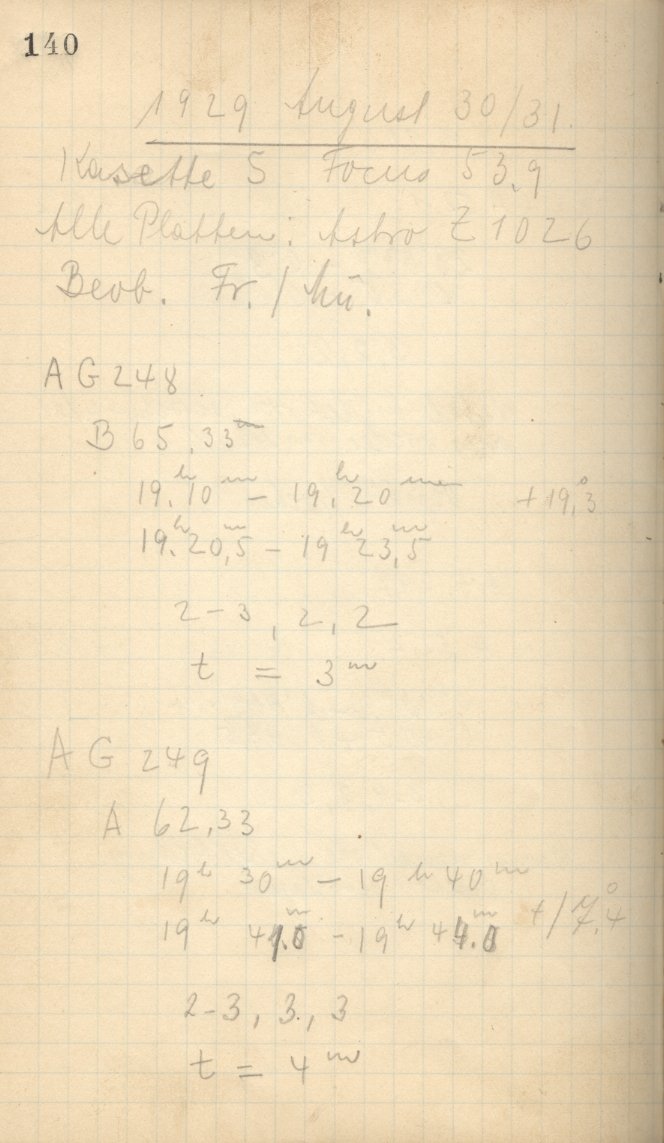 140
1929 August 30/31.
Kasette 5 Focus 53,9
Alle Platten: Astro Z 1026
Beob. Fr. / Mü.
AG 248
B 65,33
19.ʰ10ᵐ – 19.ʰ20ᵐⁱⁿ +19,°3
19.ʰ20,ᵐ5 – 19ʰ23,ᵐ5
2-3, 2, 2
t = 3ᵐ
AG 249
A 62,33
19ʰ 30ᵐ – 19ʰ 40ᵐ
19ʰ 41.ᵐ0 – 19ʰ 44.ᵐ0 +17,°4
2-3, 3, 3
t = 4ᵐ